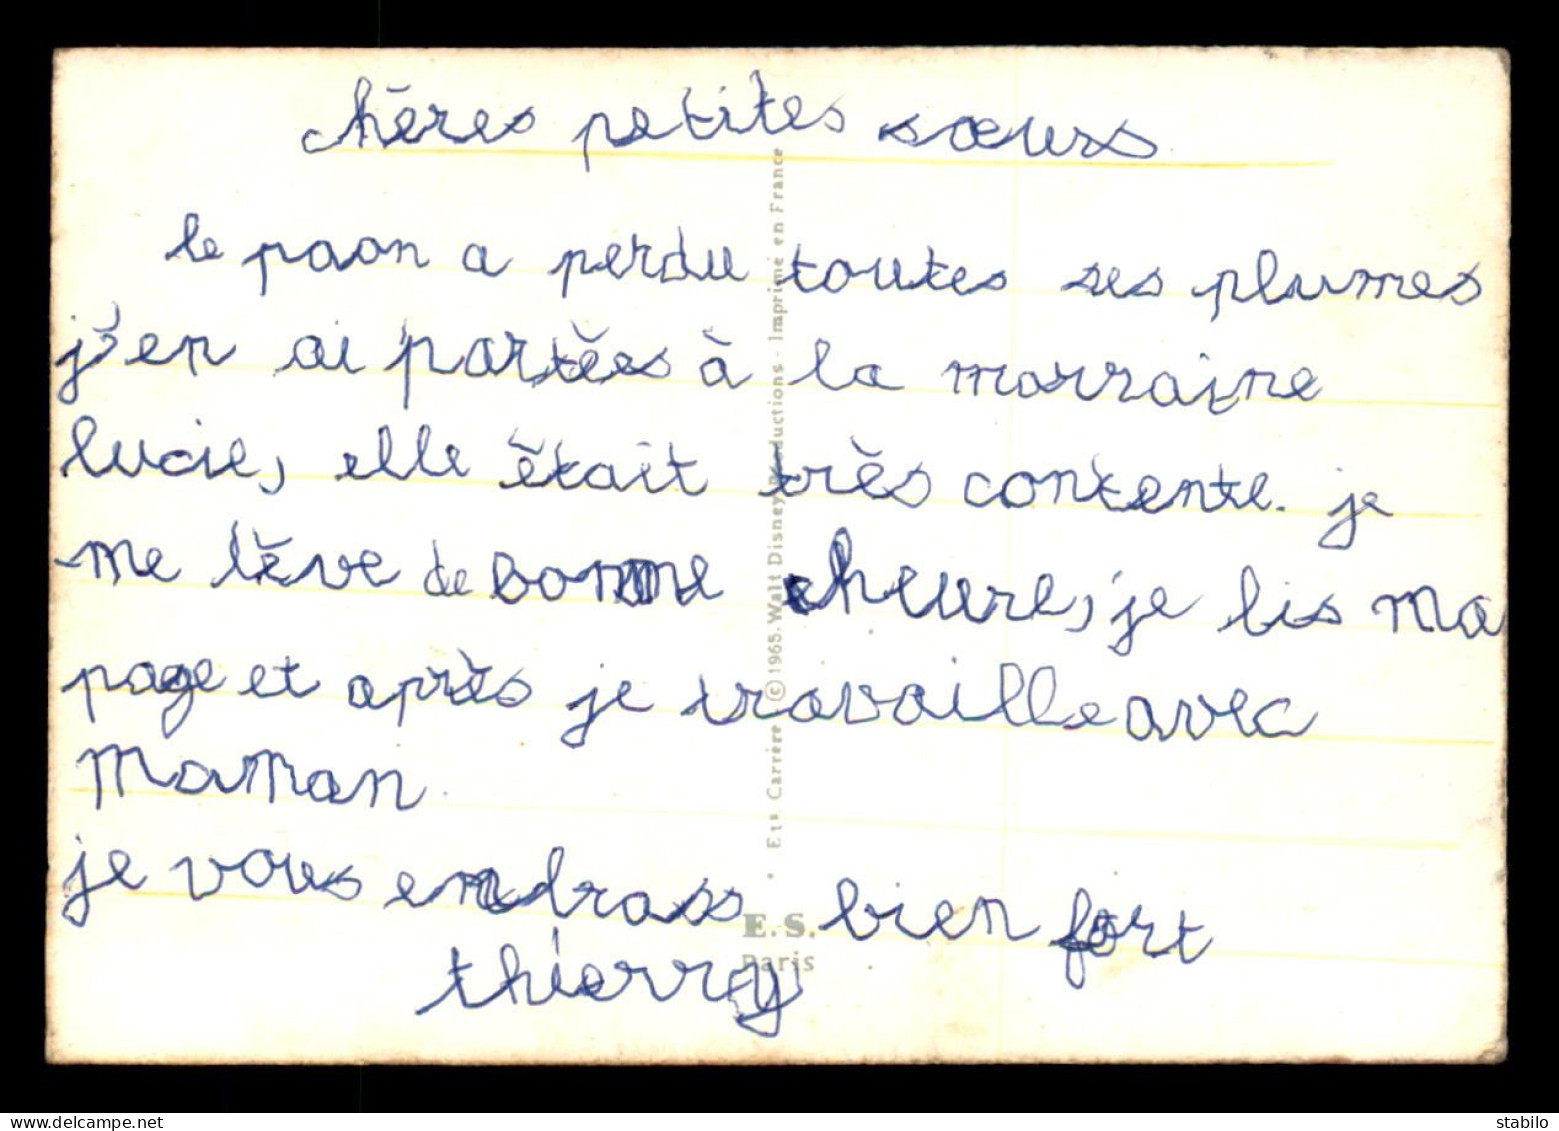 chères petites sœurs
le paon a perdu toutes ses plumes
j'en ai portées à la marraine
lucie, elle était très contente. je
me lève de bonne heure, je lis ma
page et après je travaille avec
maman
je vous embrass bien fort
thierry
Ets. Carrère © 1965. Walt Disney Productions - Imprimé en France
E. S.
Paris
stabilo